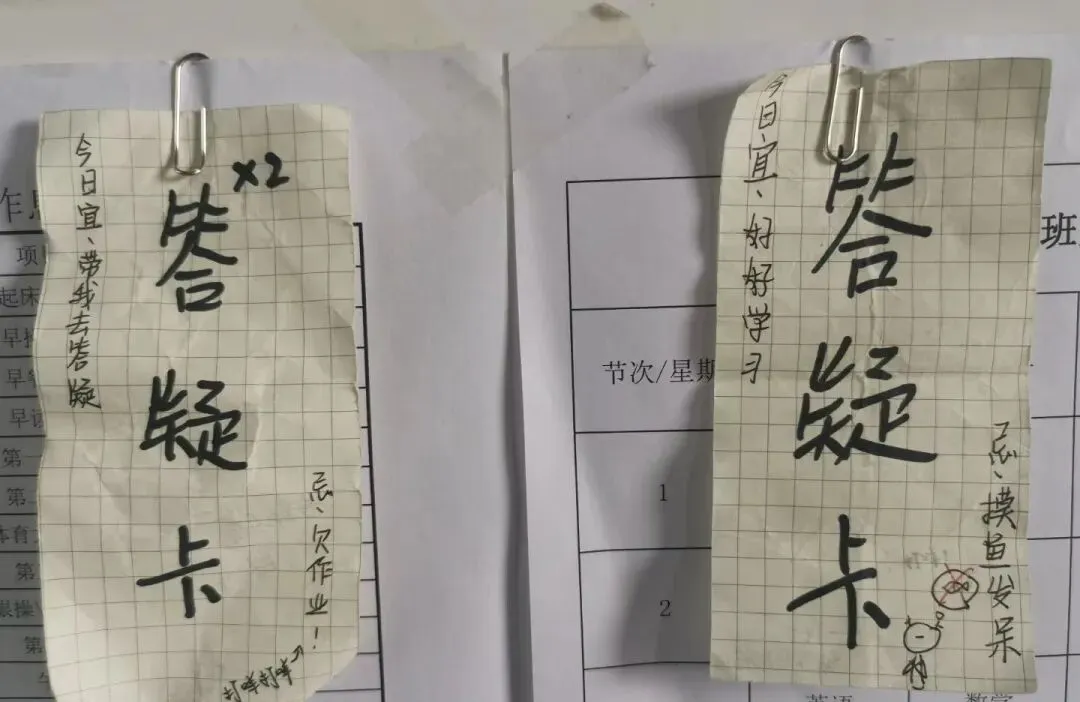 今日宜、带我去答疑
×2
答疑卡
忌、欠作业！
今日宜、好好学习
答疑卡
忌、摸鱼发呆
作息
项
起床
早
早
早读
第一
第
体育
第
课操
第
班
节次/星期
1
2
英语
数学